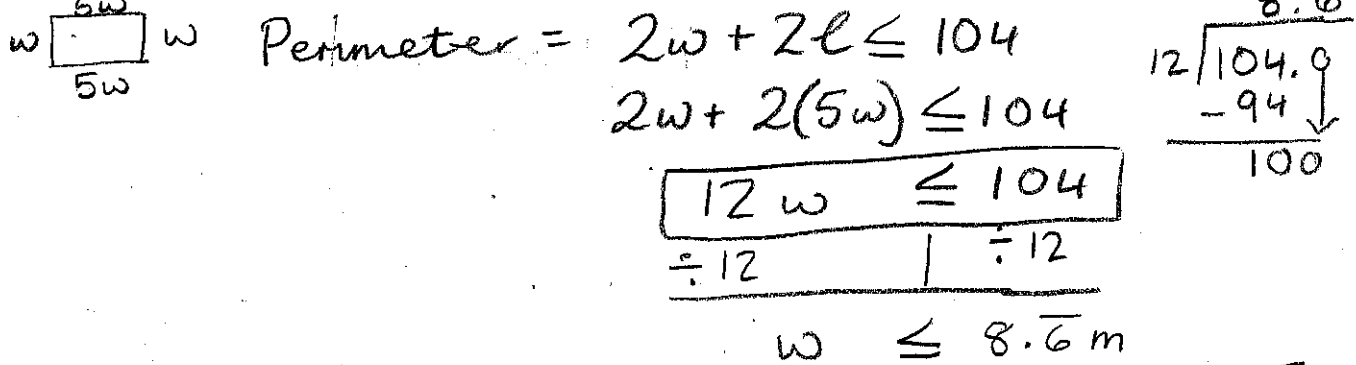 5w
w w
5w
Perimeter = 2w + 2l ≤ 104
2w + 2(5w) ≤ 104
12w ≤ 104
÷12 | ÷12
w ≤ 8.6̅ m
8.6
12 104.0
-94
100